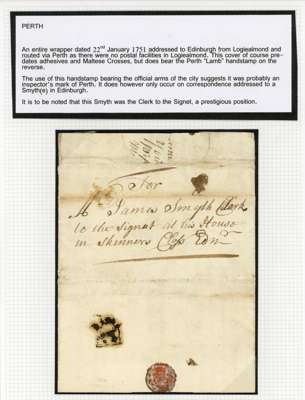 PERTH
An entire wrapper dated 22nd January 1751 addressed to Edinburgh from Logiealmond and
routed via Perth as there were no postal facilities in Logiealmond. This cover of course pre-
dates adhesives and Maltese Crosses, but does bear the Perth "Lamb" handstamp on the
reverse.
The use of this handstamp bearing the official arms of the city suggests it was probably an
inspector's mark of Perth. It does however only occur on correspondence addressed to a
Smyth(e) in Edinburgh.
It is to be noted that this Smyth was the Clerk to the Signet, a prestigious position.
For
Mr James Smyth Clark
to the signat at his House
in Skinners Closs Ednr